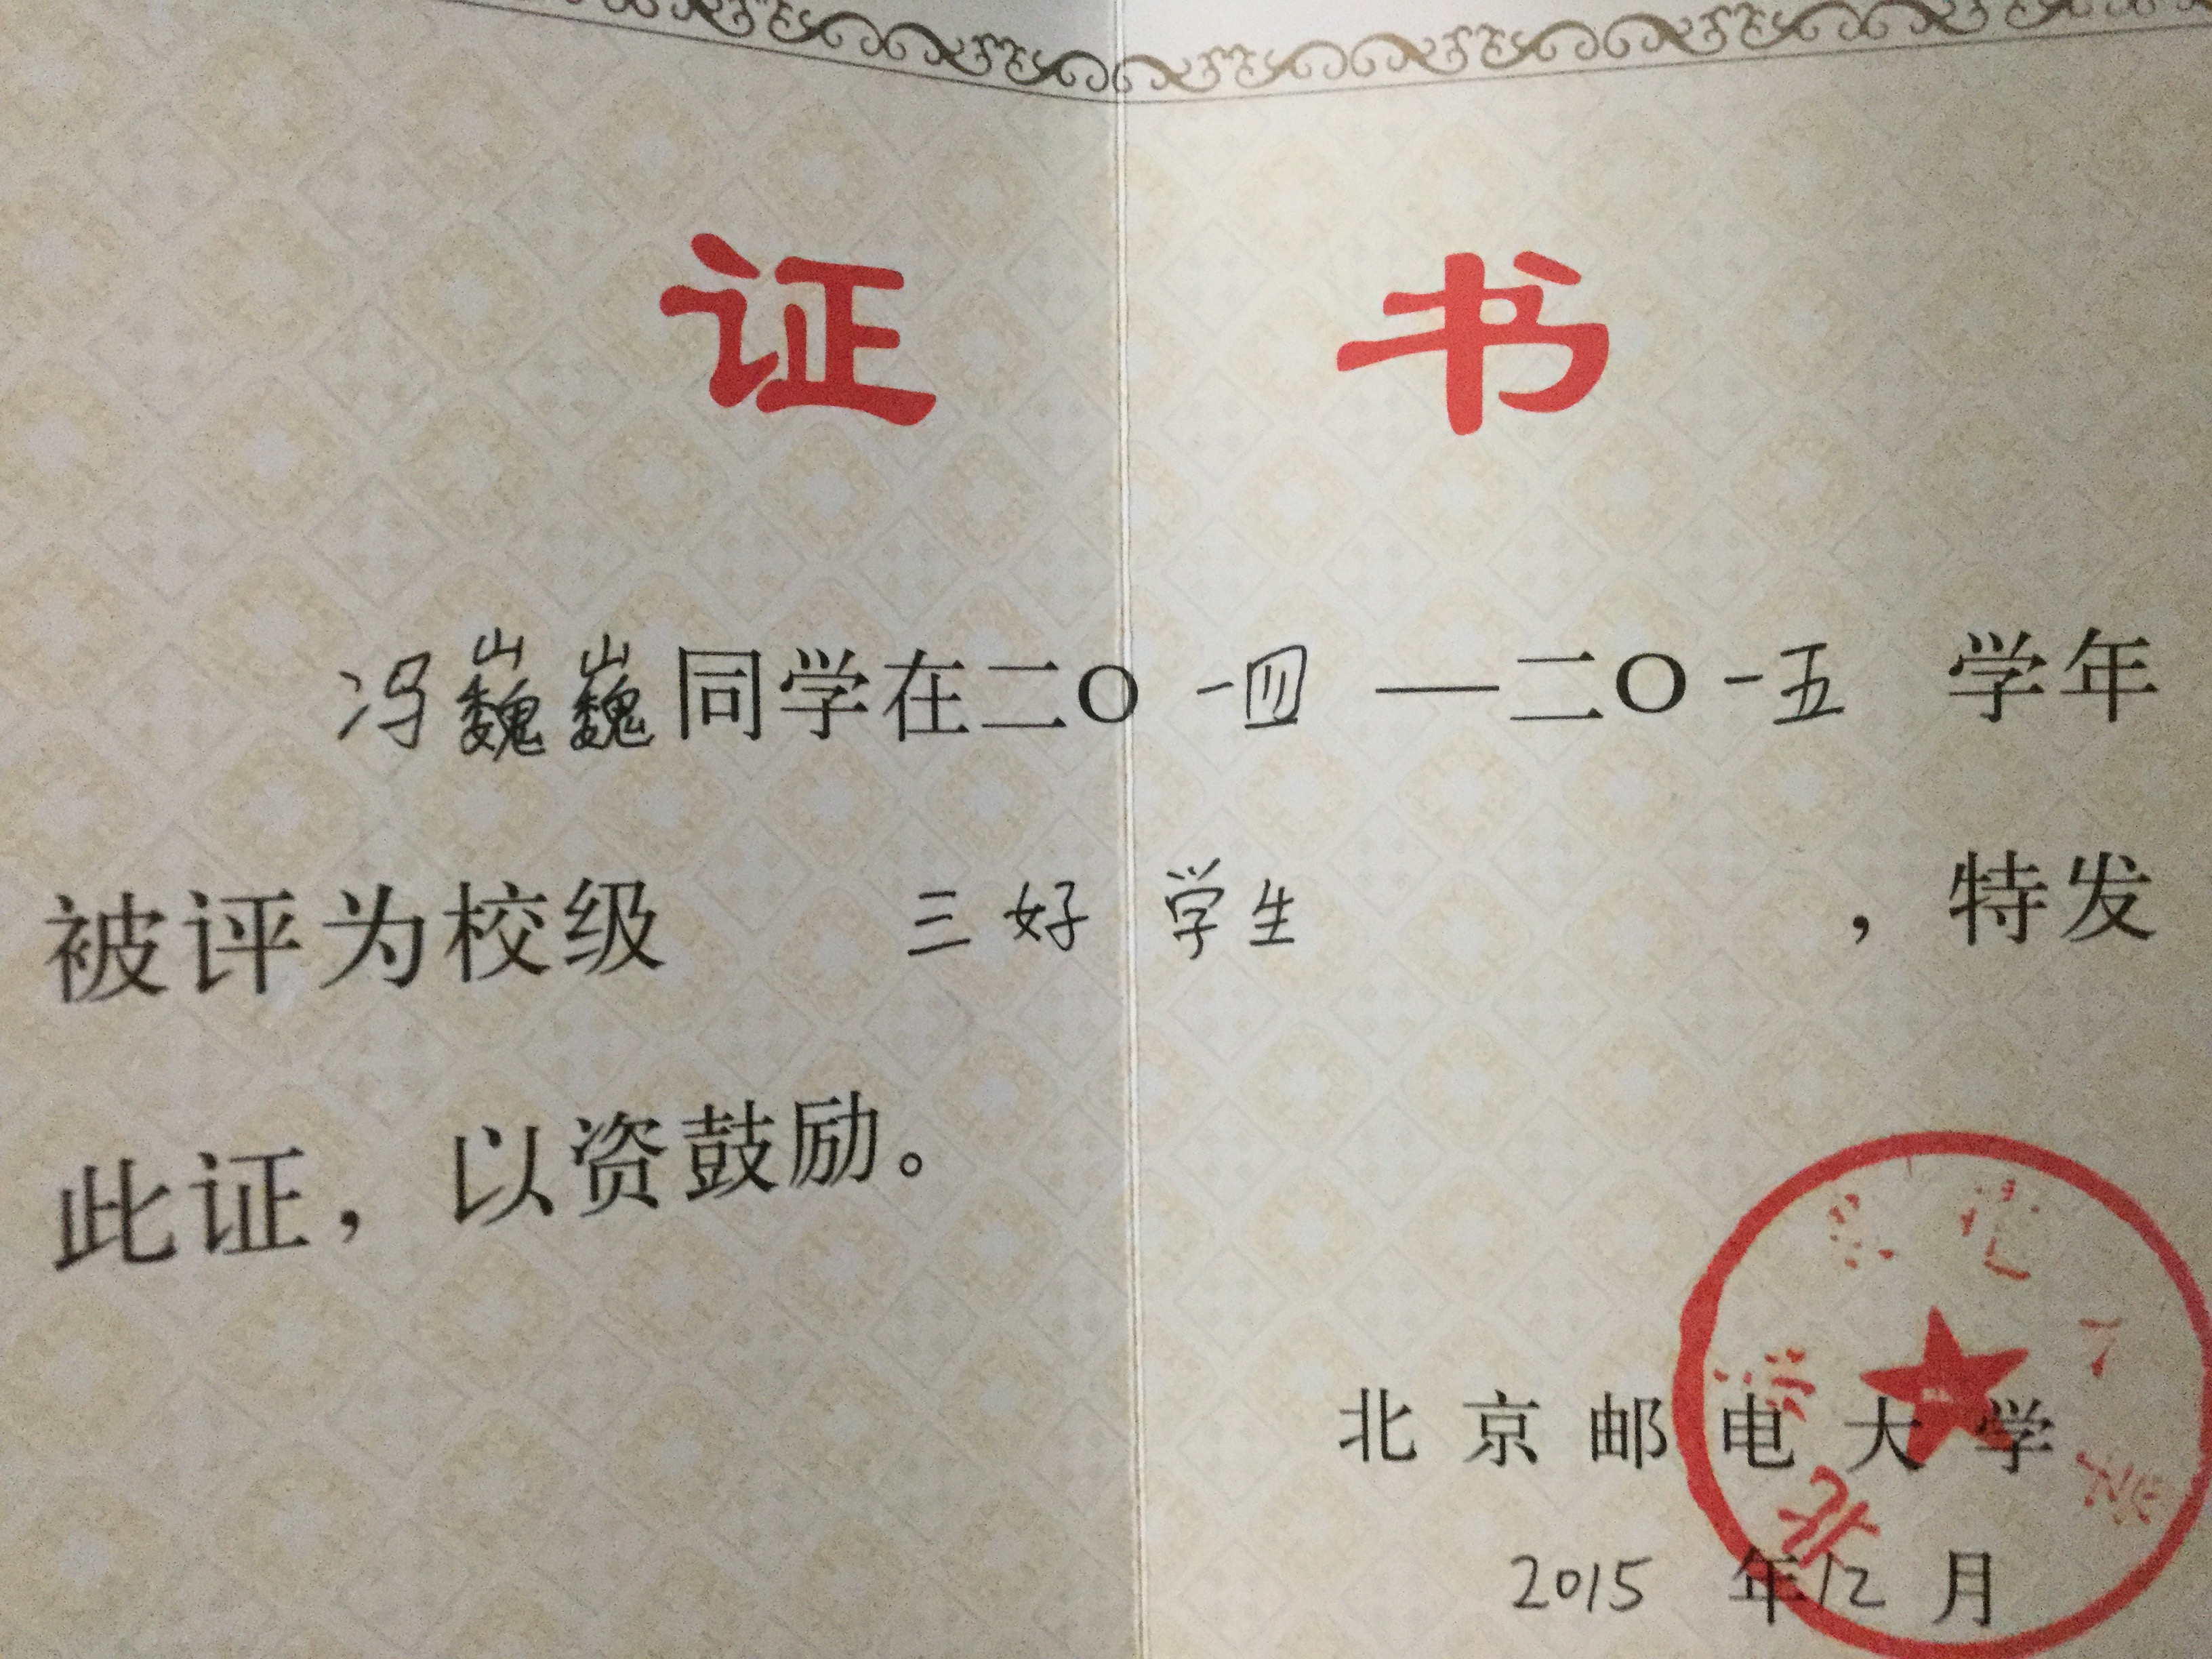 证 书
冯巍巍同学在二〇一四——二〇一五 学年
被评为校级 三好学生 ，特发
此证，以资鼓励。
北京邮电大学
2015 年12 月